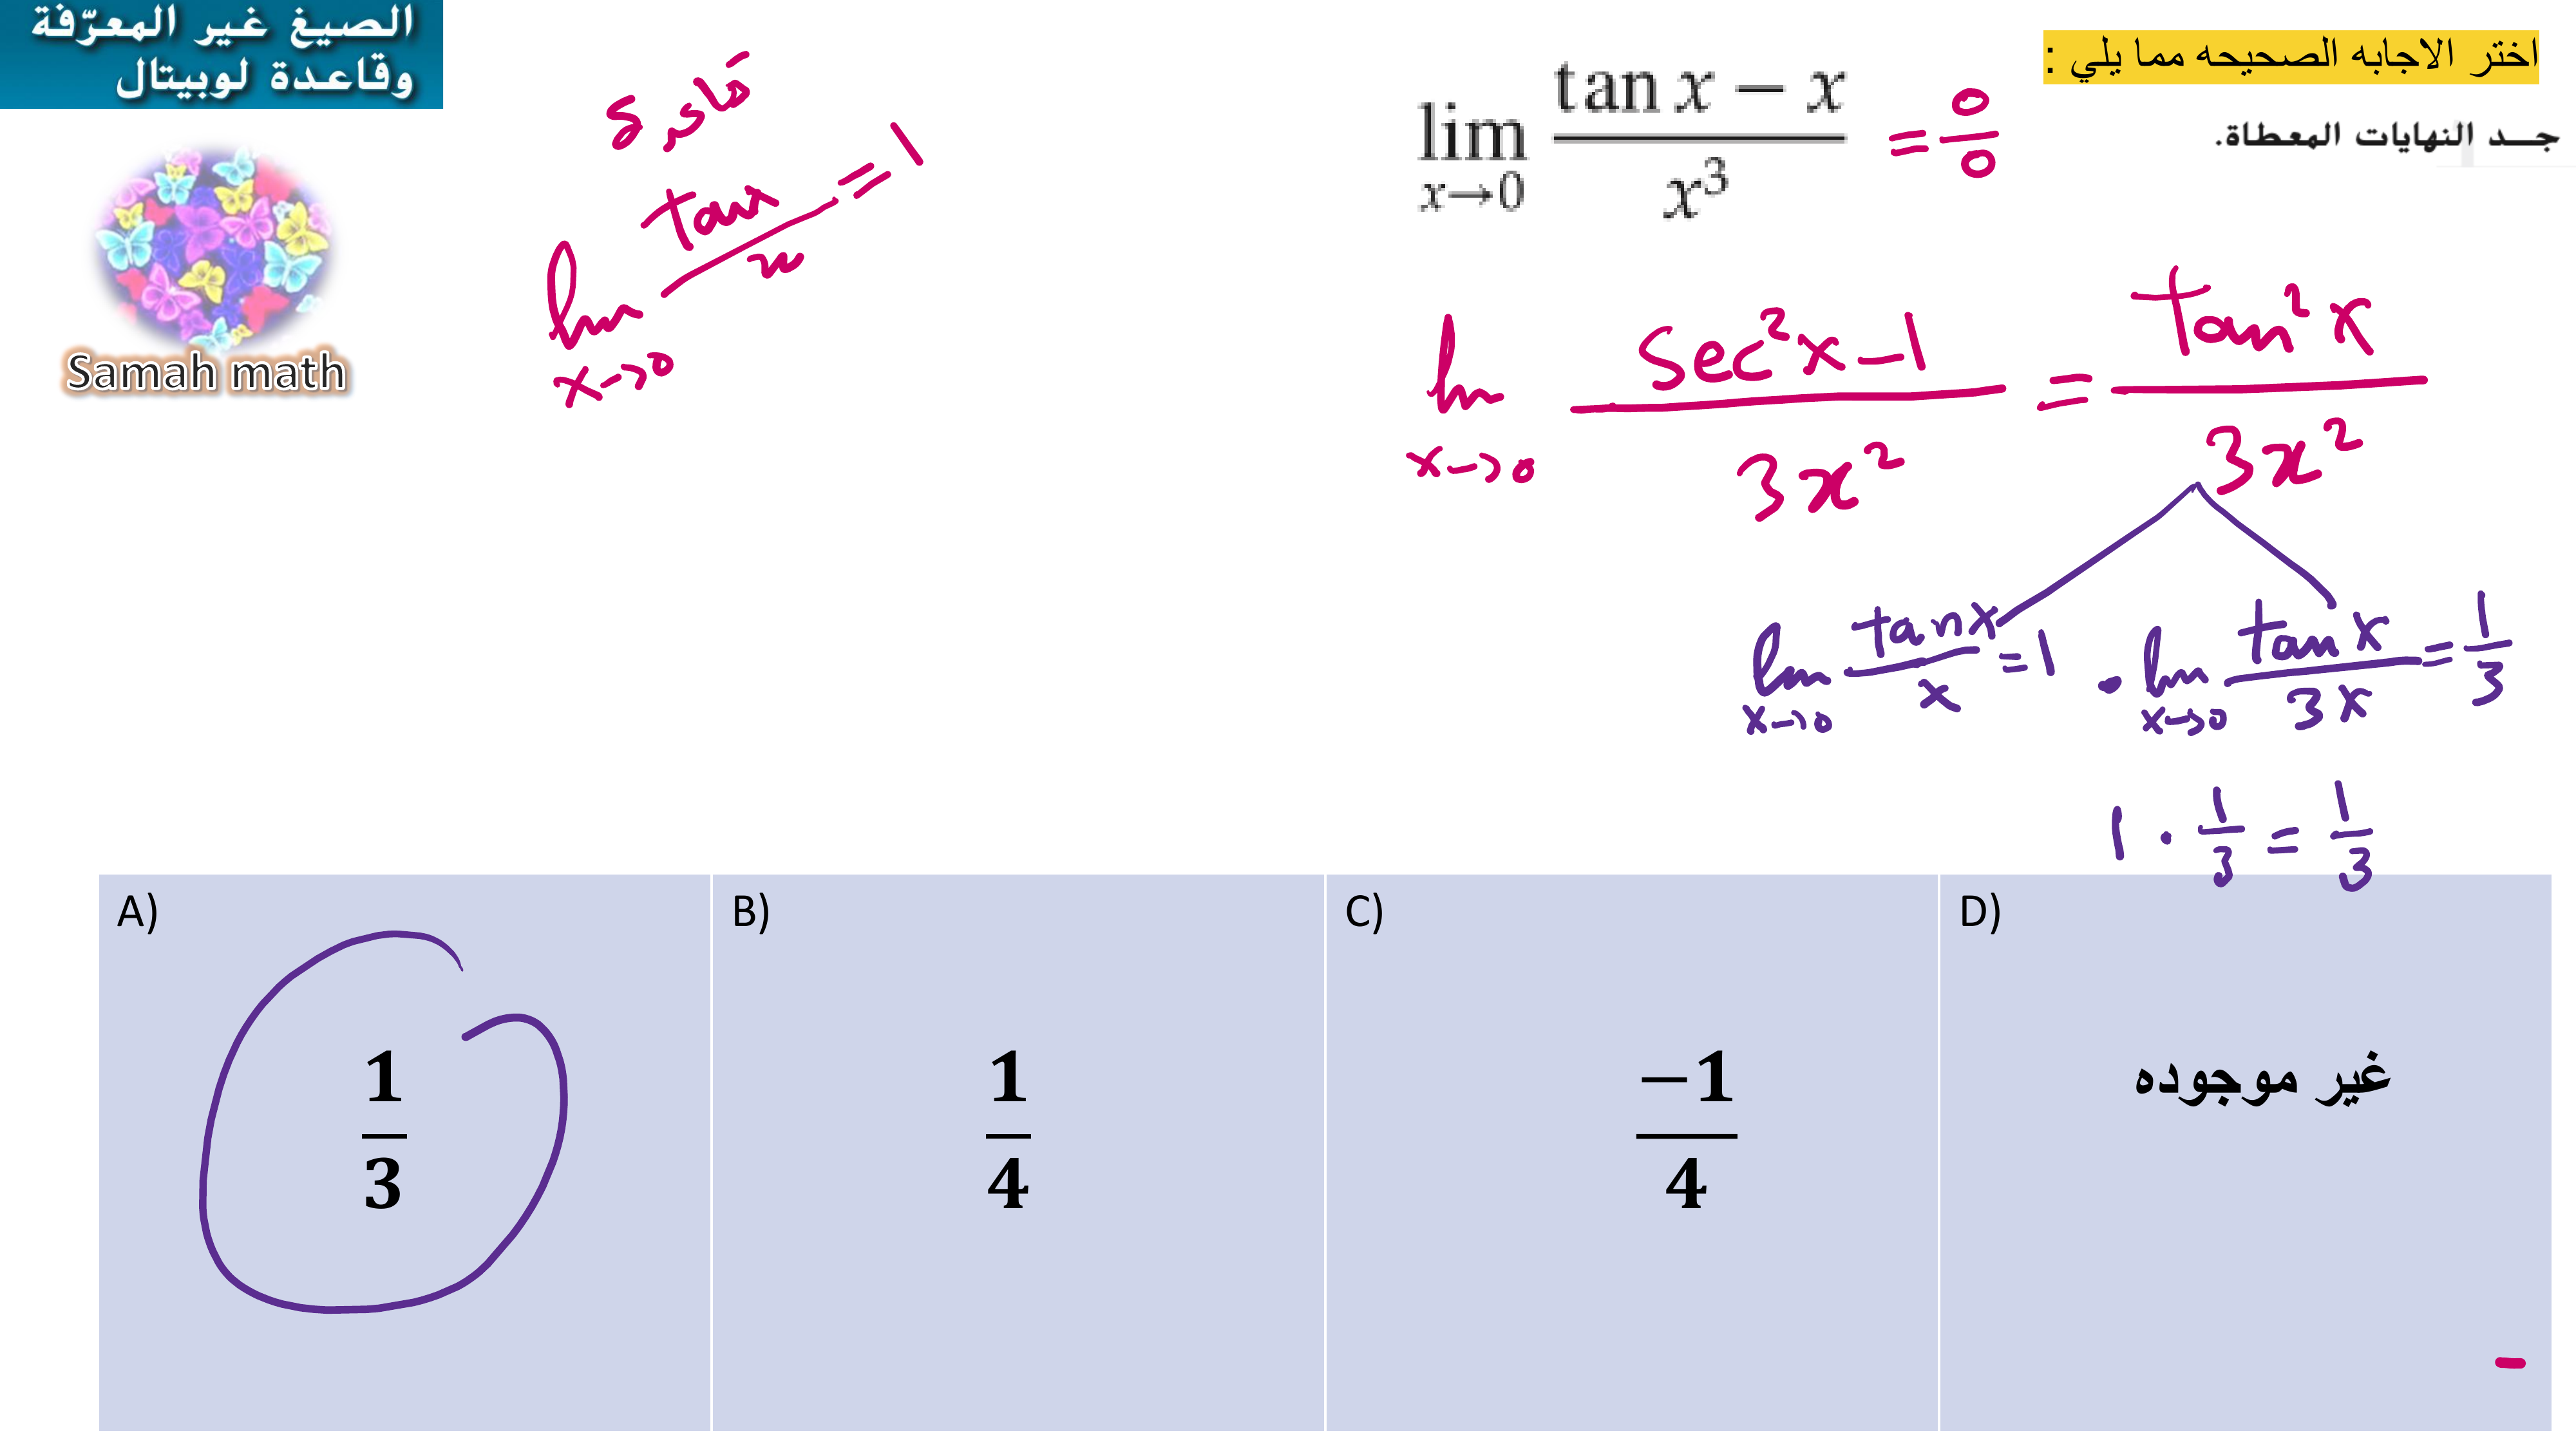 الصيغ غير المعرّفة
وقاعدة لوبيتال
Samah math
اختر الاجابه الصحيحه مما يلي :
جد النهايات المعطاة.
lim x→0 (tan x − x)/x³ = 0/0
lim x→0 tan x/x = 1
lim x→0 (sec²x − 1)/3x² = tan²x/3x²
lim x→0 tan x/x = 1 · lim x→0 tan x/3x = 1/3
1 · 1/3 = 1/3
A) 1/3
B) 1/4
C) −1/4
D) غير موجوده